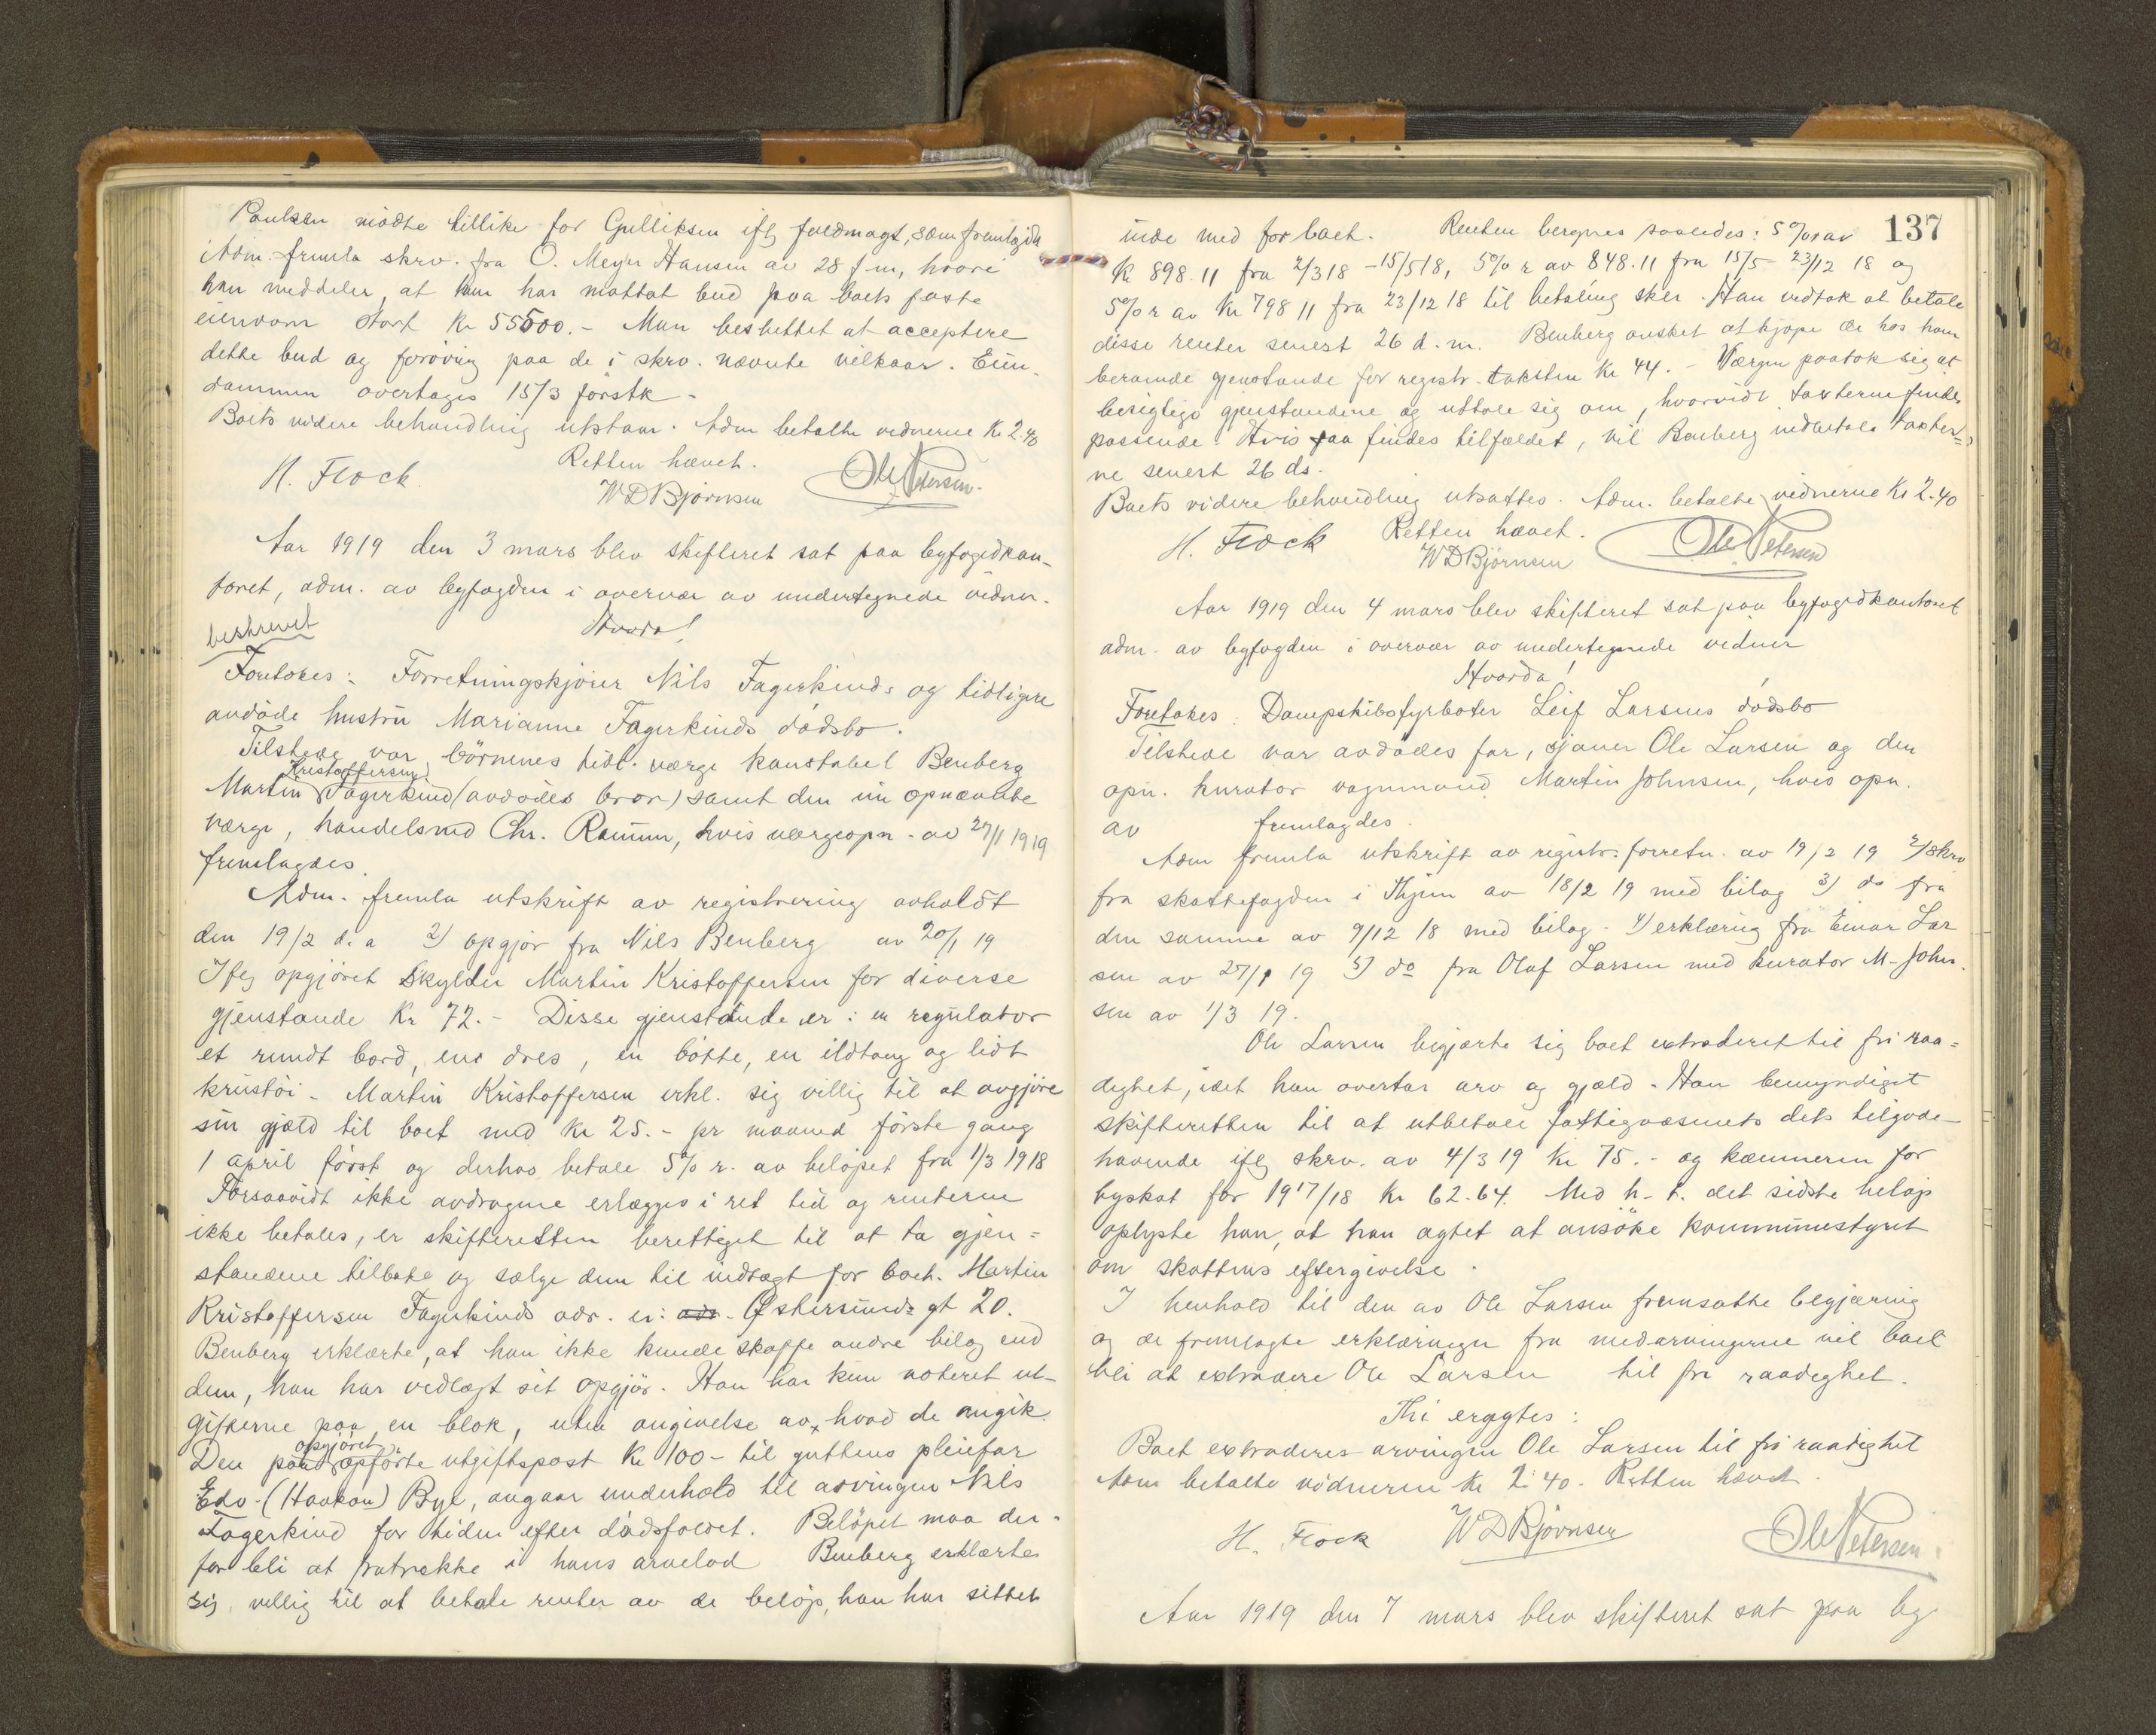 Paulsen mödte tillike for Gulliksen iflg fuldmagt, som fremlagdes
Adm. fremla skrv. fra O. Meyer Hansen av 28 f m, hvori
han meddeler, at han har mottat bud paa boets faste
eiendom stort Kr 55500.- Man besluttet at acceptere
dette bud og forövrig paa de i skrv. nævnte vilkaar. Eien-
dommen overtages 15/3 förstk-
Boets videre behandling utstaar. Adm betalte vidnerne Kr 2.40
Retten hævet.
H. Flock
W D Björnsen
Ole Petersen
Aar 1919 den 3 mars blev skifteret sat paa byfogdkon-
toret, adm. av byfogden i overvær av undertegnede vidner.
beskrevet
Hvorda!
Foretokes: Forretningskjörer Nils Fagerkinds og tidligere
avdöde hustru Marianne Fagerkinds dödsbo.
Tilstede var börnenes tidl. værge konstabel Benberg
Martin Kristoffersen Fagerkind (avdödes bror) samt den nu opnævnte
værge, handelsmd Chr. Ramm, hvis værgeopn. av 27/1 1919
fremlagdes.
Adm. fremla utskrift av registrering avholdt
den 19/2 d. a 2) opgjör fra Nils Benberg av 20/1 19
Iflg opgjöret skylder Martin Kristoffersen for diverse
gjenstande Kr 72.- Disse gjenstande er: en regulator
et rundt bord, en dres, en bötte, en ildtang og lidt
krustöi- Martin Kristoffersen erkl. sig villig til at avgjöre
sin gjæld til boet med Kr 25.- pr maaned förste gang
1 april först og derhos betale 5% r. av belöpet fra 1/3 1918
Forsaavidt ikke avdragene erlægges i ret tid og renterne
ikke betales, er skifteretten berettiget til at ta gjen=
standene tilbake og sælge dem til indtægt for boet. Martin
Kristoffersen Fagerkinds adr. er: adr. Østersunds gt 20.
Benberg erklærte, at han ikke kunde skaffe andre bilag end
dem, han har vedlagt sit opgjör. Han har kun noteret ut-
gifterne paa en blok, uten angivelse av, hvad de angik.
Den paa opgjöret opförte utgiftspost Kr 100- til guttens pleiefar
Edv. (Haakon) Bye, angaar underhold til arvingen Nils
Fagerkind for tiden efter dödsfaldet. Belöpet maa der-
for bli at fratrække i hans arvelod Benberg erklærte
sig villig til at betale renter av de belöp, han har sittet
137
inde med for boet. Renten beregnes saaledes: 5% r av
Kr 898.11 fra 2/3 18 - 15/5 18, 5% r av 848.11 fra 15/5 - 23/12 18 og
5% r av Kr 798 11 fra 23/12 18 til betaling sker. Han vedtok at betale
disse renter senest 26 d. m. Benberg önsket at kjöpe de hos ham
beroende gjenstande for registr. taksten Kr 44.- Værgen paatok sig at
besigtige gjenstandene og uttale sig om, hvorvidt taxterne findes
passende. Hvis saa findes tilfældet, vil Benberg indbetale taxter=
ne senest 26 ds.
Boets videre behandling utsattes. Adm. betalte vidnerne Kr 2.40
Retten hævet.
H. Flock
W D Björnsen
Ole Petersen
Aar 1919 den 4 mars blev skifteret sat paa byfogdkontoret
adm. av byfogden i overvær av undertegnede vidner
Hvorda!
Foretokes: Dampskibsfyrböter Leif Larsens dödsbo
Tilstede var avdödes far, sjauer Ole Larsen og den
opn. kurator vognmand Martin Johnsen, hvis opn.
av fremlagdes.
Adm fremla utskrift av registr. forretn. av 19/2 19 2) skrv
fra skattefogden i Thjem av 18/2 19 med bilag 3) do fra
den samme av 9/12 18 med bilag. 4) erklæring fra Einar Lar
sen av 27/1 19 5) do fra Olaf Larsen med kurator M. John.
sen av 1/3 19.
Ole Larsen begjærte sig boet extraderet til fri raa=
dighet, idet han overtar arv og gjæld. Han bemyndiget
skifteretten til at utbetale fattigvæsenets dets tilgode-
havende iflg skrv. av 4/3 19 Kr 75.- og kæmneren for
byskat for 1917/18 Kr 62.64. Med h. t. det sidste belöp
oplyste han, at han agtet at ansöke kommunestyret
om skattens eftergivelse.
I henhold til den av Ole Larsen fremsatte begjæring
og de fremlagte erklæringer fra medarvingerne vil boet
bli at extradere Ole Larsen til fri raadighet.
Thi eragtes:
Boet extraderes arvingen Ole Larsen til fri raadighet
Adm betalte vidnerne Kr 2.40. Retten hævet.
H. Flock
W D Björnsen
Ole Petersen
Aar 1919 den 7 mars blev skifteret sat paa by